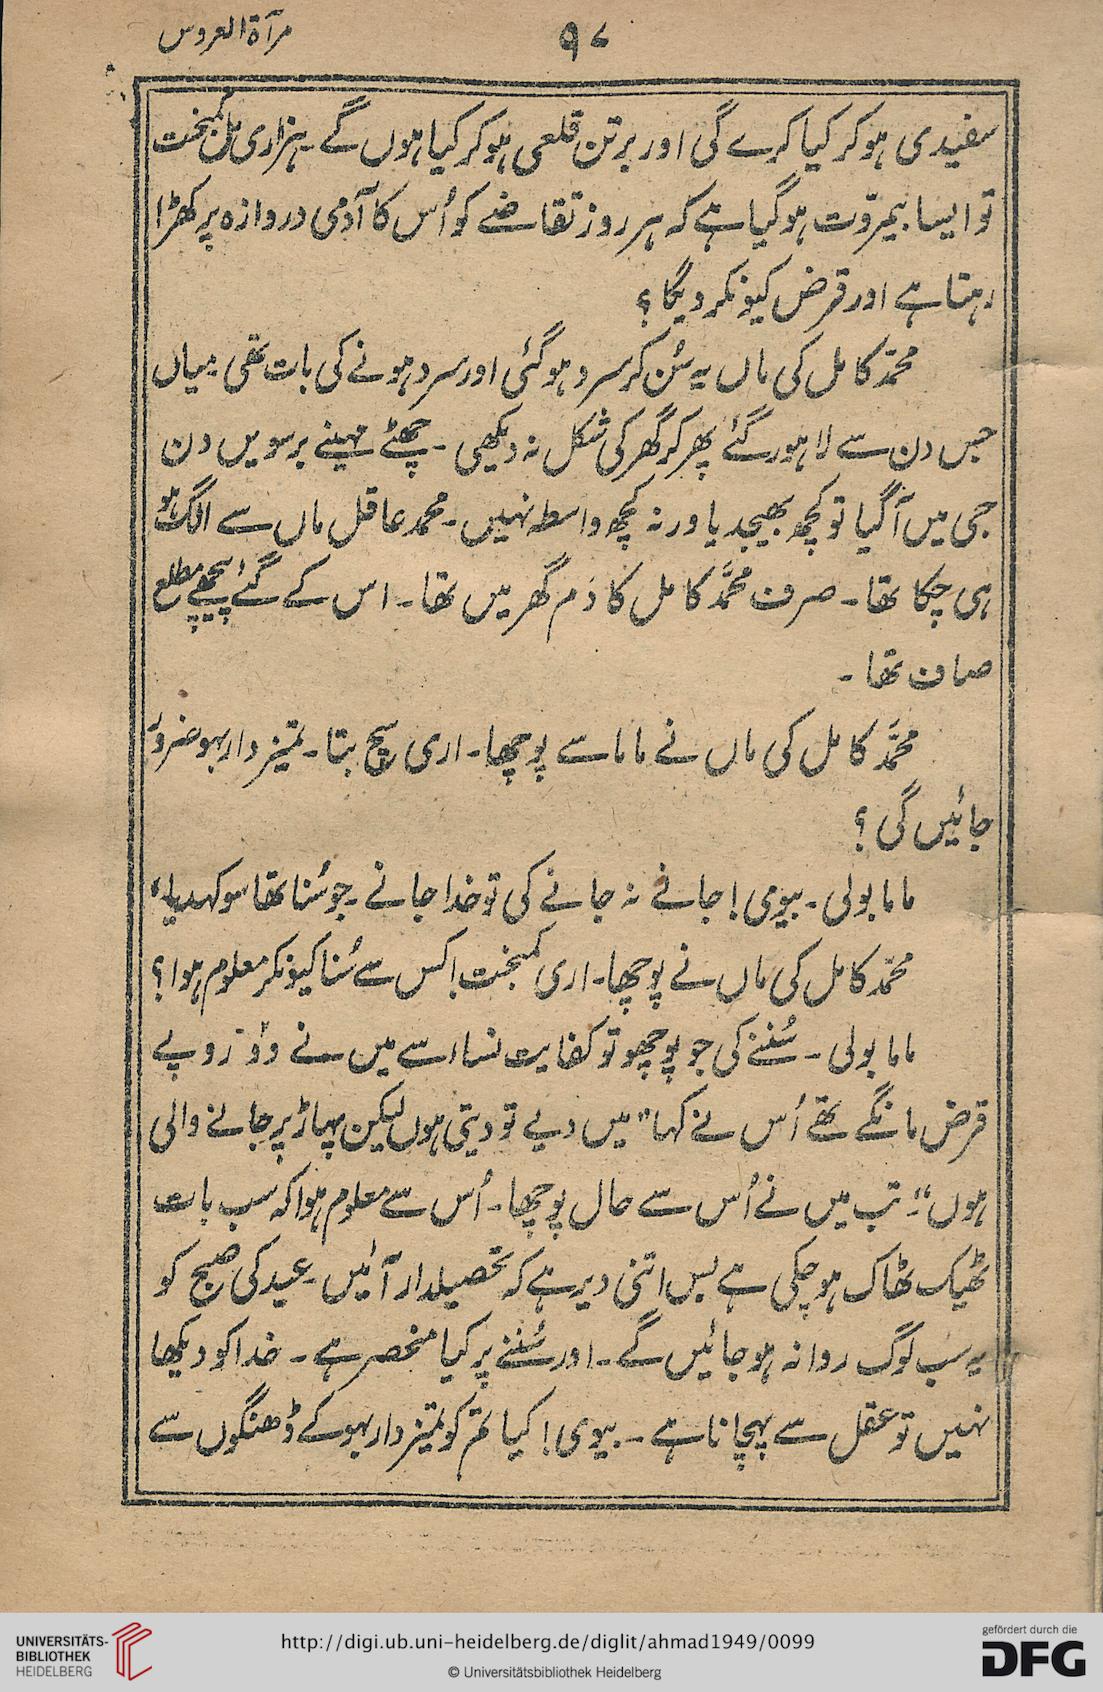 ۹۷
مرآۃ العروس
سفیدی ہو کر کیا کرے گی اور برتن قلعی ہو کر کیا ہوں گے۔ ہزاری مل کمبخت
تو ایسا بیمروّت ہو گیا ہے کہ ہر روز تقاضے کو اُس کا آدمی دروازہ پر کھڑا
رہتا ہے اور قرض کیونکر دیگا؟
محمّد کامل کی ماں یہ سُن کر سرد ہو گئی اور سرد ہونے کی بات تھی۔ میاں
جس دن سے لاہور گئے پھر کر گھر کی شکل نہ دیکھی۔ چھٹے مہینے برسویں دن
جی میں آ گیا تو کچھ بھیجدیا ورنہ کچھ واسطہ نہیں۔ محمد عاقل ماں سے الگ ہو
ہی چکا تھا۔ صرف محمّد کامل کا دَم گھر میں تھا۔ اس کے گئے پیچھے مطلع
صاف تھا۔
محمّد کامل کی ماں نے ماما سے پوچھا۔ اری سچ بتا۔ تمیز دار بہو ضرور
جائیں گی؟
ماما بولی۔ بیوی! جانے نہ جانے کی تو خدا جانے۔ جو سُنا تھا سو کہدیا،
محمّد کامل کی ماں نے پوچھا۔ اری کمبخت! کس سے سُنا کیونکر معلوم ہوا؟
ماما بولی۔ سُننے کی جو پوچھو تو کفایت نساء سے میں نے دو روپے
قرض مانگے تھے اُس نے کہا "میں دیے تو دیتی ہوں لیکن پہاڑ پر جانے والی
ہوں"۔ تب میں نے اُس سے حال پوچھا۔ اُس سے معلوم ہوا کہ سب بات
ٹھیک ٹھاک ہو چکی ہے بس اتنی دیر ہے کہ تحصیلدار آئیں۔ عید کی صبح کو
یہ سب لوگ روانہ ہو جائیں گے۔ اور سُننے پر کیا منحصر ہے۔ خدا کو دیکھا
نہیں تو عقل سے پہچانا ہے۔ بیوی! کیا تم کو تمیز دار بہو کے ڈھنگوں سے
UNIVERSITÄTS-
BIBLIOTHEK
HEIDELBERG
http://digi.ub.uni-heidelberg.de/diglit/ahmad1949/0099
© Universitätsbibliothek Heidelberg
gefördert durch die
DFG